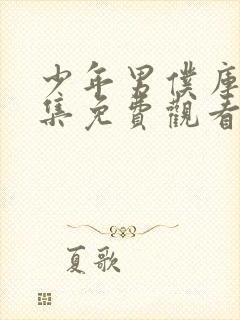 少年男僕庫
集免費觀看
夏歌